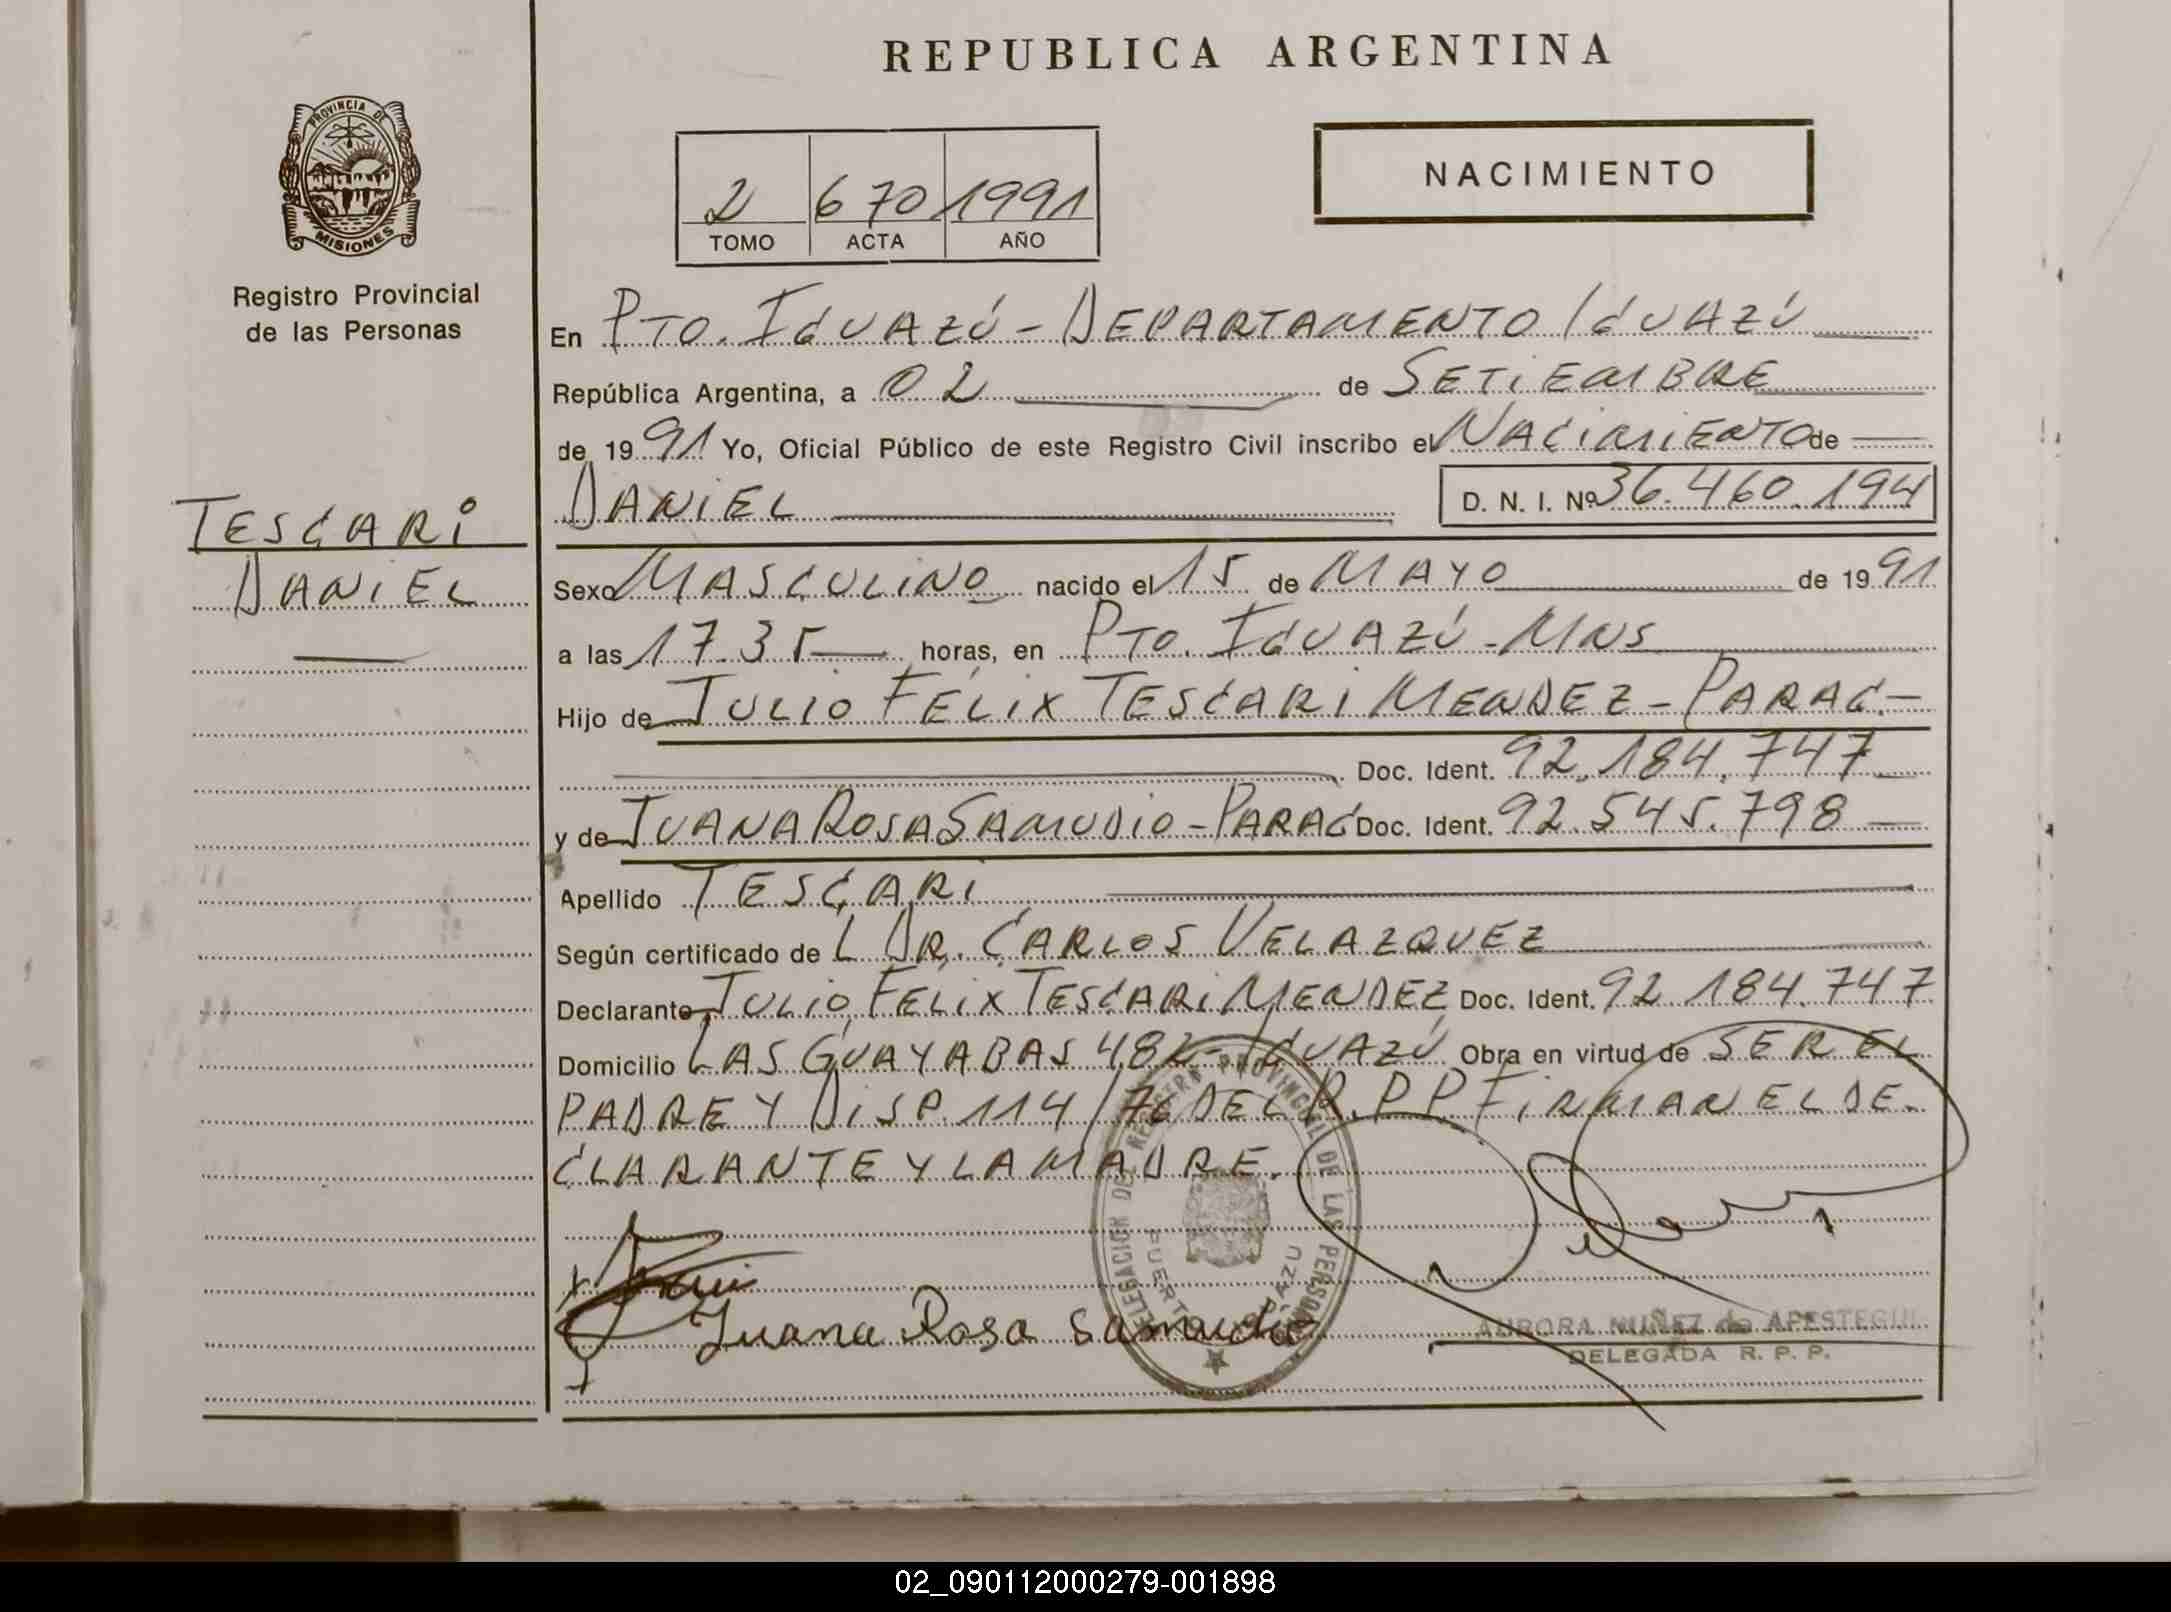 REPUBLICA ARGENTINA
PROVINCIA DE
MISIONES
Registro Provincial
de las Personas
2 670 1991
TOMO ACTA AÑO
NACIMIENTO
En PTO. IGUAZÚ - DEPARTAMENTO IGUAZÚ
República Argentina, a 02 de SETIEMBRE
de 1991 Yo, Oficial Público de este Registro Civil inscribo el NACIMIENTO de
DANIEL D. N. I. Nº 36.460.194
TESCARI
DANIEL
Sexo MASCULINO nacido el 15 de MAYO de 1991
a las 17.35 horas, en PTO. IGUAZÚ - MNS
Hijo de JULIO FELIX TESCARI MENDEZ - PARAG.-
Doc. Ident. 92.184.747
y de JUANA ROSA SAMUDIO - PARAG Doc. Ident. 92.545.798
Apellido TESCARI
Según certificado de L DR. CARLOS VELAZQUEZ
Declarante JULIO FELIX TESCARI MENDEZ Doc. Ident. 92.184.747
Domicilio LAS GUAYABAS 482 - IGUAZÚ Obra en virtud de SER EL
PADRE Y DISP. 114/76 DEL R.P.P. FIRMAN EL DE-
CLARANTE Y LA MADRE.
DELEGACION DEL REGISTRO PROVINCIAL DE LAS PERSONAS
PUERTO IGUAZU
Juana Rosa Samudio
AURORA NUÑEZ de APESTEGUI
DELEGADA R. P. P.
02_090112000279-001898